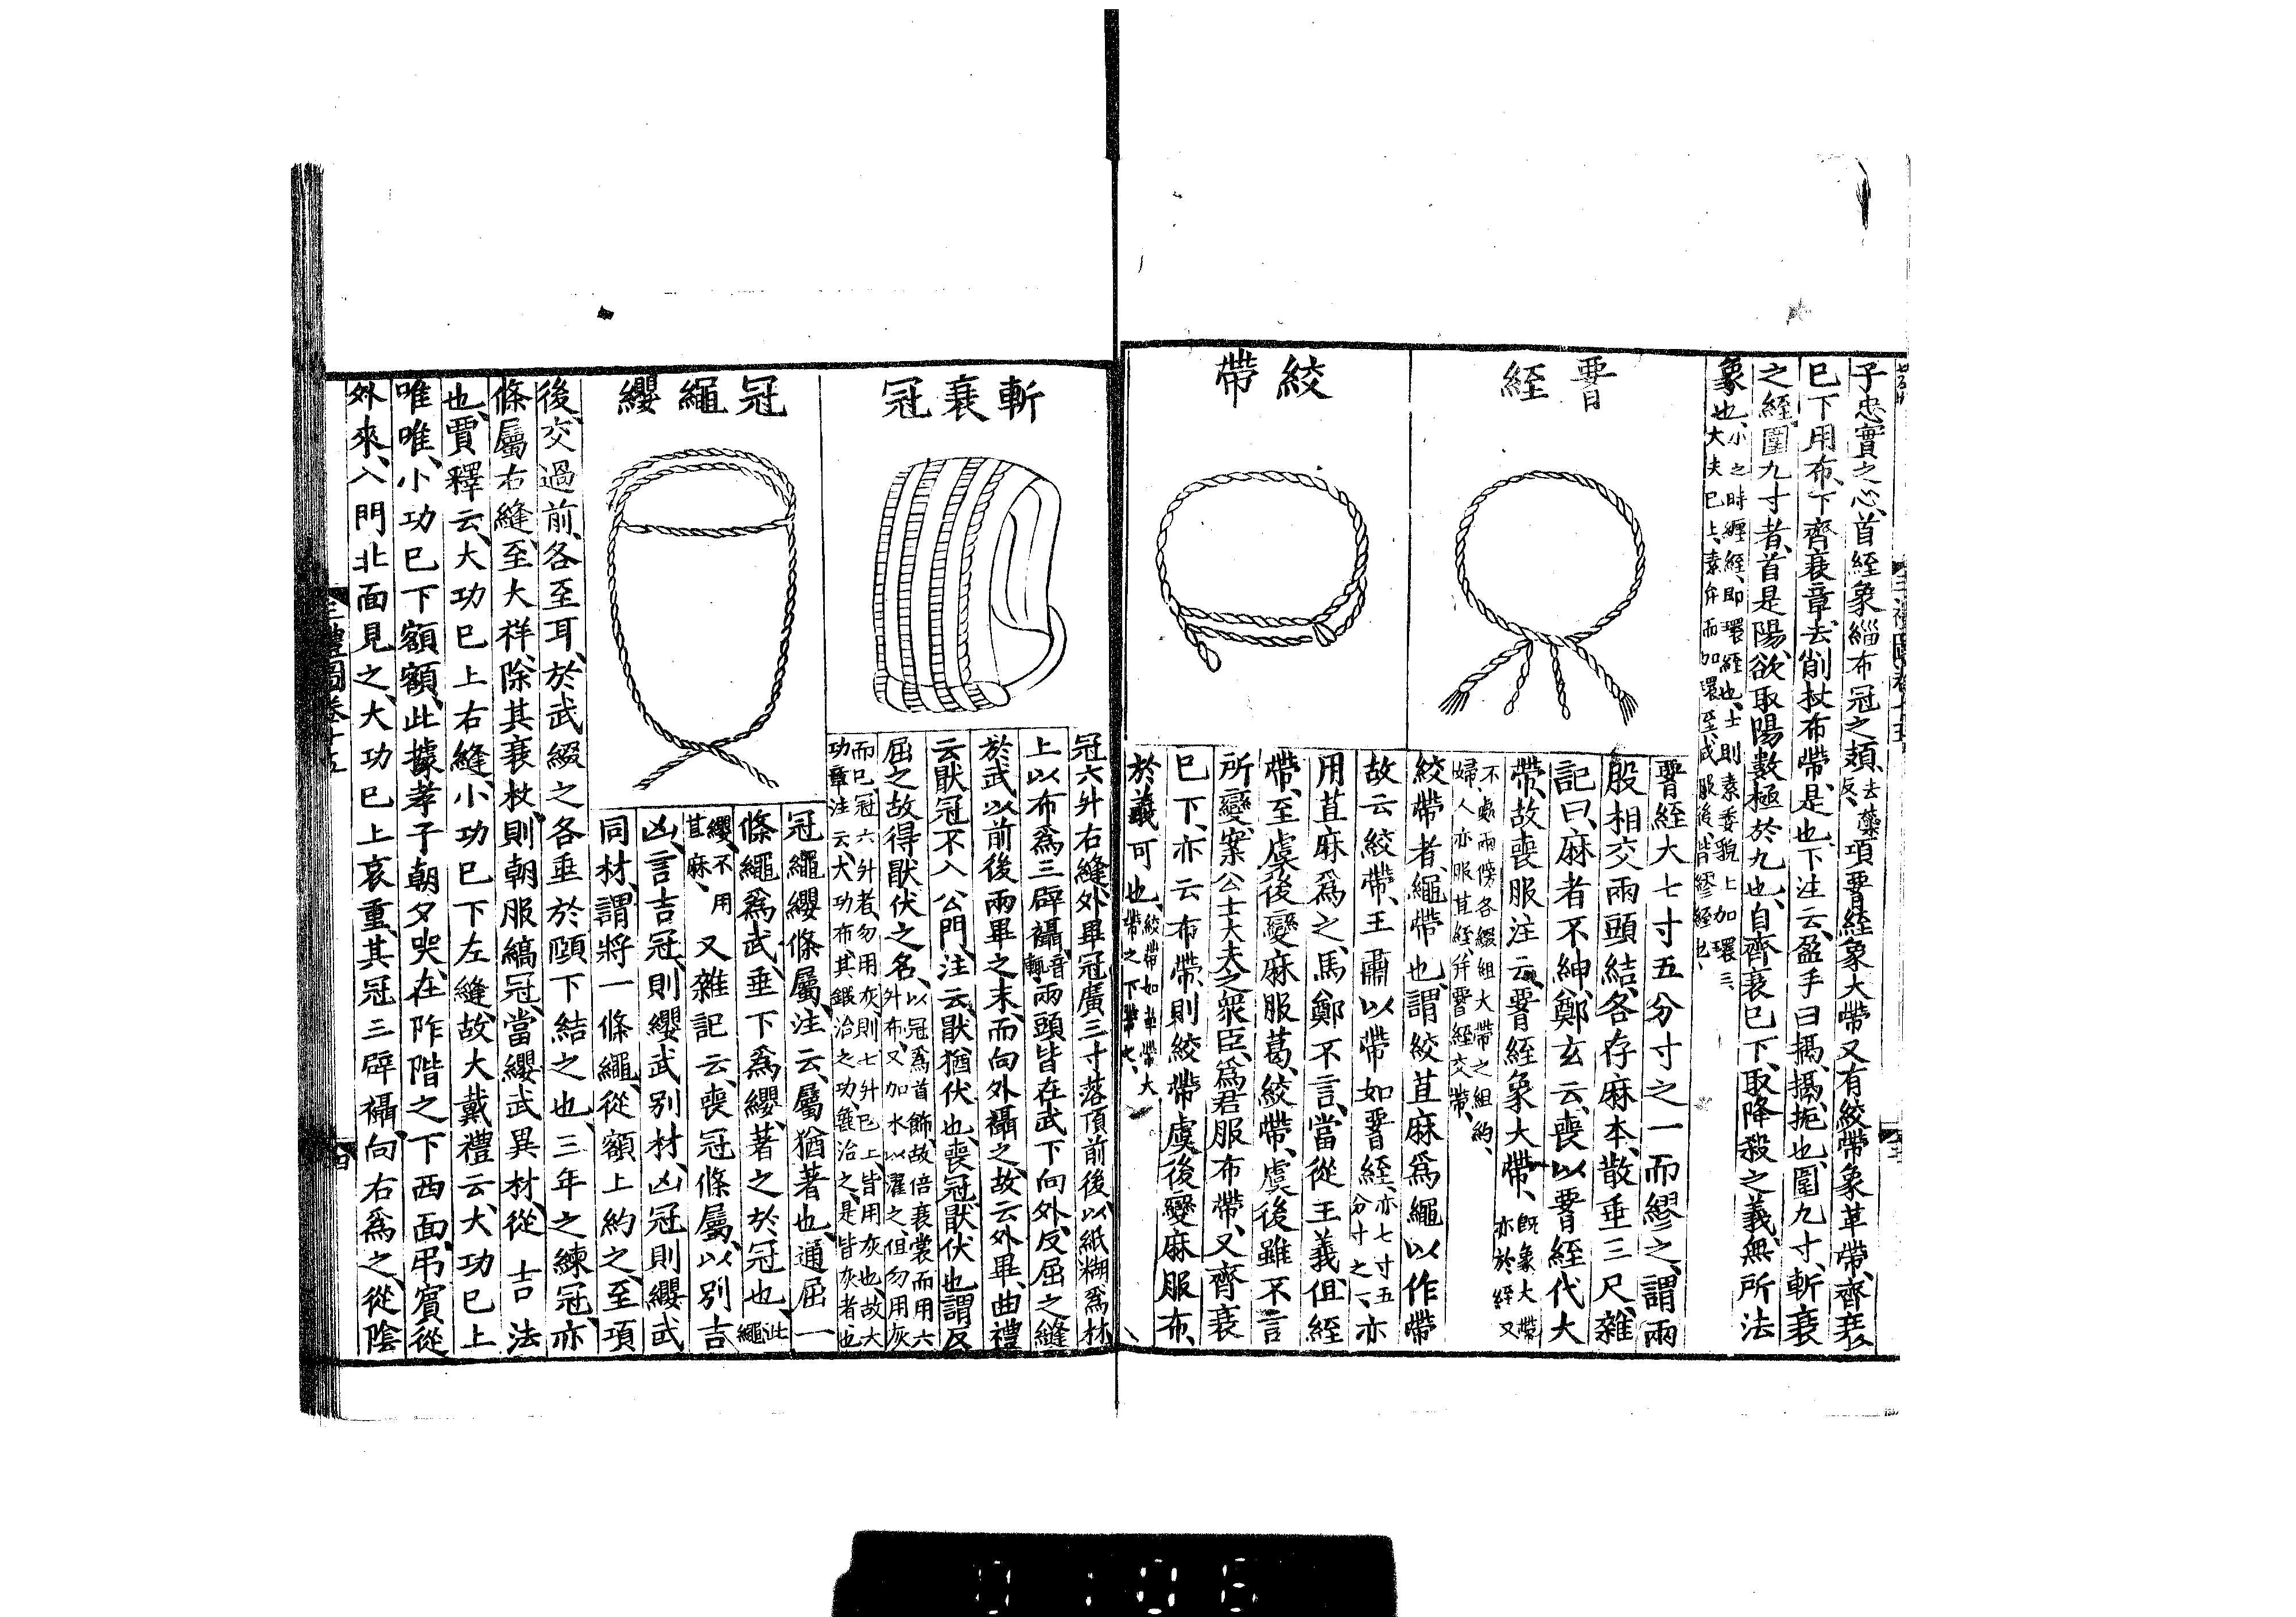 子忠實之心首絰象緇布冠之頍去蘂反項䙅絰象大帶又有絞帶象革帶齊衰
已下用布下齊衰章去削杖布帶是也下注云盈手曰搹搹扼也圍九寸斬衰
之絰圍九寸者首是陽欲取陽數極於九也自齊衰已下取降殺之義無所法
象也小之時纏絰即環絰也士則素委貌上加環三
大夫已上素弁而加環至成服後皆繆絰也
䙅絰
䙅絰大七寸五分寸之一而繆之謂兩
股相交兩頭結各存麻本散垂三尺雜
記曰麻者不紳鄭玄云喪以䙅絰代大
帶故喪服注云䙅絰象大帶既象大帶亦於絰又
不處兩傍各綴組大帶之組約
婦人亦服苴絰并䙅絰交帶
絞帶
絞帶者繩帶也謂絞苴麻爲繩以作帶
故云絞帶王肅以帶如䙅絰亦七寸五分寸之一亦
用苴麻爲之馬鄭不言當從王義但絰
帶至虞後變麻服葛絞帶虞後雖不言
所變案公士大夫之衆臣爲君服布帶又齊衰
已下亦云布帶則絞帶虞後變麻服布
於義可也絞帶如革帶大帶之下帶也
斬衰冠
冠六升右縫外畢冠廣三寸落頂前後以紙糊爲材
上以布爲三辟襵音輒兩頭皆在武下向外反屈之縫
於武以前後兩畢之末而向外襵之故云外畢曲禮
云猒冠不入公門注云猒猶伏也喪冠猒伏也謂反
屈之故得猒伏之名以冠爲首飾故倍衰裳而用六升布又加水以濯之但勿用灰
而已冠六升者勿用灰則七升已上皆用灰也故大
功章注云大功布其鍛治之功麤治之是皆灰者也
冠繩纓
冠繩纓條屬注云屬猶著也通屈一
條繩爲武垂下爲纓著之於冠也此繩
纓不用苴麻又雜記云喪冠條屬以別吉
凶言吉冠則纓武别材凶冠則纓武
同材謂將一條繩從額上約之至項
後交過前各至耳於武綴之各垂於頤下結之也三年之練冠亦
條屬右縫至大祥除其衰杖則朝服縞冠當纓武異材從吉法
也賈釋云大功已上右縫小功已下左縫故大戴禮云大功已上
唯唯小功已下額額此據孝子朝夕哭在阼階之下西面弔賓從
外來入門北面見之大功已上哀重其冠三辟襵向右爲之從陰
三禮圖卷十五
四
0106